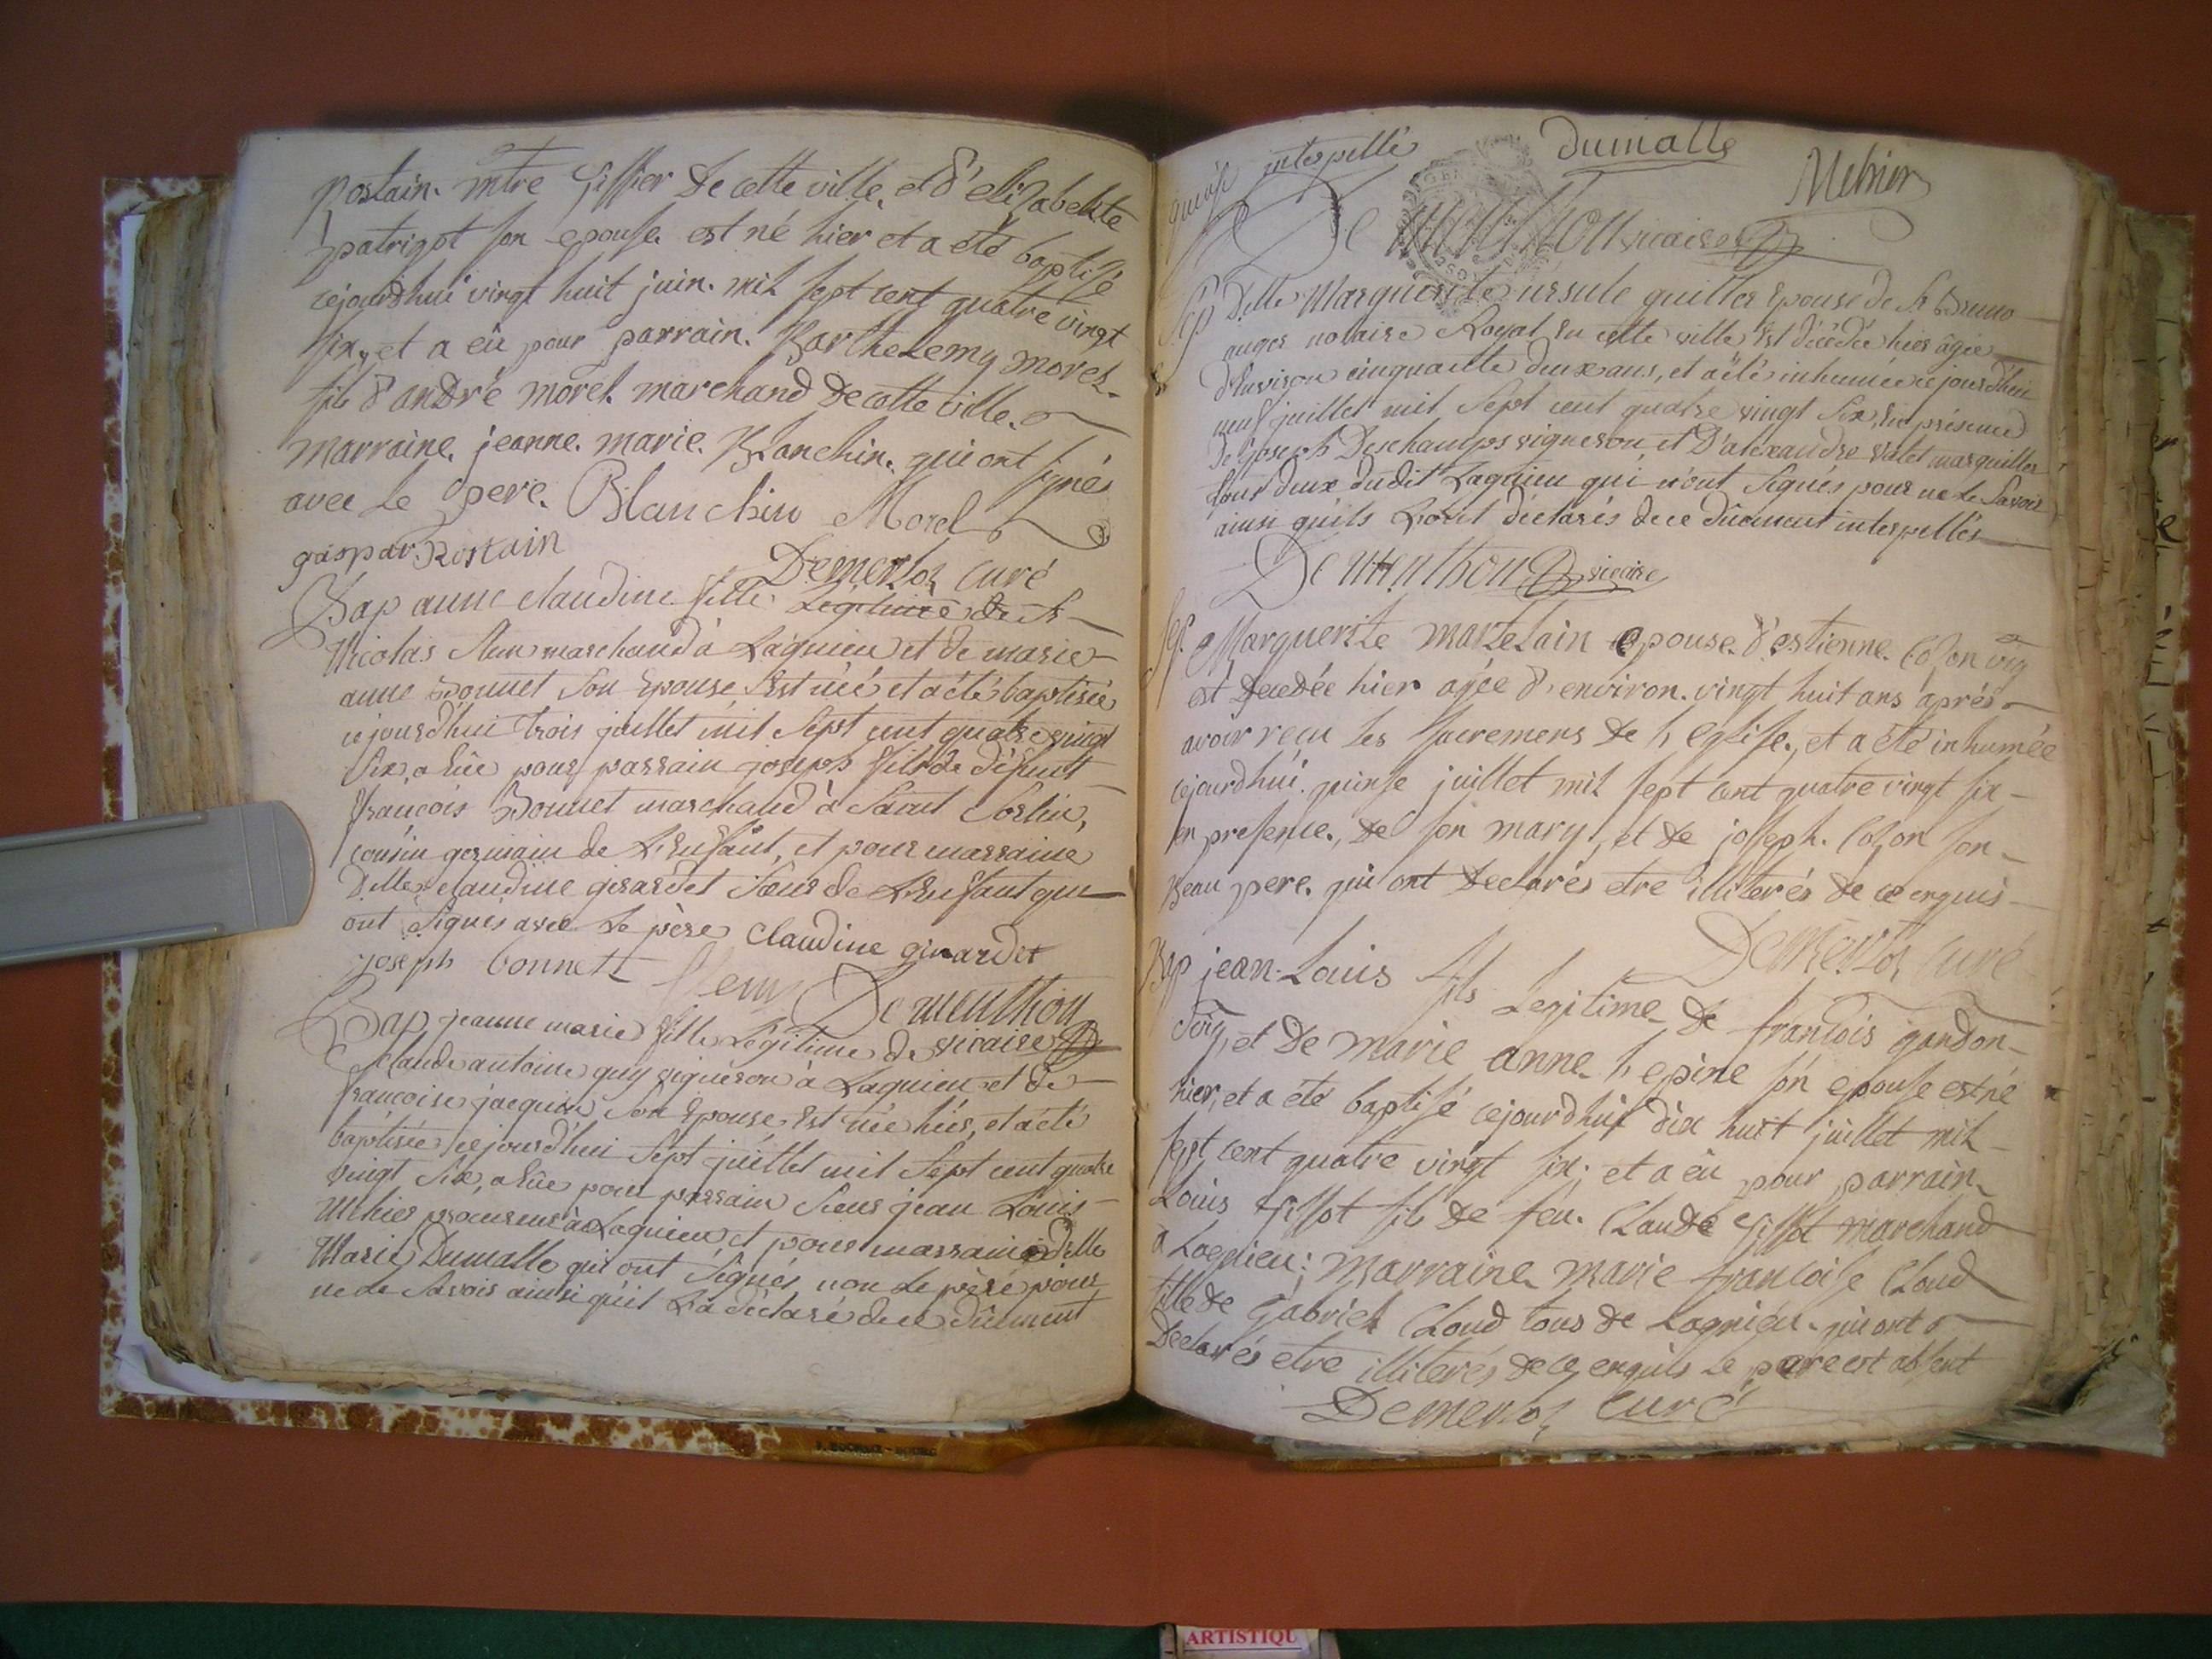 Rostain. mtre Gissier de cette ville, et d'elizabethte
patrigot son epouse est né hier et a été baptisé
cejourdhui vingt huit juin. mil sept cent quatre vingt
six, et a eû pour parrain. Barthelemy morel
fils d'andré morel marchand de cette ville.
marraine jeanne. marie. Blanchin. qui ont signés
avec le pere. Blanchin Morel
gaspar. Rostain
Demerloz curé
Bap anne claudine fille Legitime de Sr
Nicolas marchand à Lagnieu et de marie
anne Bonnet son Epouse, Est née et a été baptisée
ce jourd'hui trois juillet mil Sept cent quatre vingt
Six, a Eûe pour parrain joseph fils de défunt
françois Bonnet marchand à Saint Sorlin,
cousin germain de L'Enfant, et pour marraine
Delle claudine girardet Sœur de L'Enfant qui
ont Signés avec Le père Claudine girardet
joseph bonnett
De menthon
Bap jeanne marie fille Légitime de vicaire
Claude antoine guy vigneron à Lagnieu et de
françoise jacquin Son Epouse Est née hier, et a été
baptisée ce jourd'hui Sept juillet mil Sept cent quatre
vingt Six, a Eûe pour parrain Sieur jean Louis
procureur à Lagnieu et pour marraine delle
Marie Dumalle qui ont Signés non Le père pour
ne Le Savoir ainsi qu'il L'a déclaré de ce dûement
interpellé
dumalle
De menthon vicaire
Sep Delle Marguerite ursule guillet Epouse de Sr Bruno
auger notaire Royal En cette ville Est décédée hier âgée
d'Environ cinquante deux ans, et a été inhumée ce jourd'hui
neuf juillet mil Sept cent quatre vingt Six, En présence
de joseph Deschamps vigneron, et D'alexandre valet marguiller
tous deux dudit Lagnieu qui n'ont Signés pour ne Le Savoir
ainsi qu'ils L'ont déclarés de ce dûement interpellés
De menthon vicaire
Sep. Marguerite martelain epouse. d'estienne. Colon vig
est decedée hier agée d'environ. vingt huit ans aprés
avoir reçu les sacremens de l'eglise, et a été inhumée
cejourdhui. quinse juillet mil sept cent quatre vingt six
en presence. de son mary, et de joseph. Colon son
Beau pere. qui ont declarés etre illiterés de ce enquis
Demerloz curé
Bap jean-Louis fils Legitime de françois gandon
vig, et de marie anne lepine son epouse est né
hier, et a été baptisé cejourdhui dix huit juillet mil
sept cent quatre vingt six; et a eû pour parrain
Louis fils de feu. Claude marchand
a Lagnieu; marraine marie françoise Cloud
fille de Gabriel Cloud tous de Lagnieu. qui ont
declarés etre illiterés de ce enquis le pere est absent
Demerloz Curé
ARTISTIQU